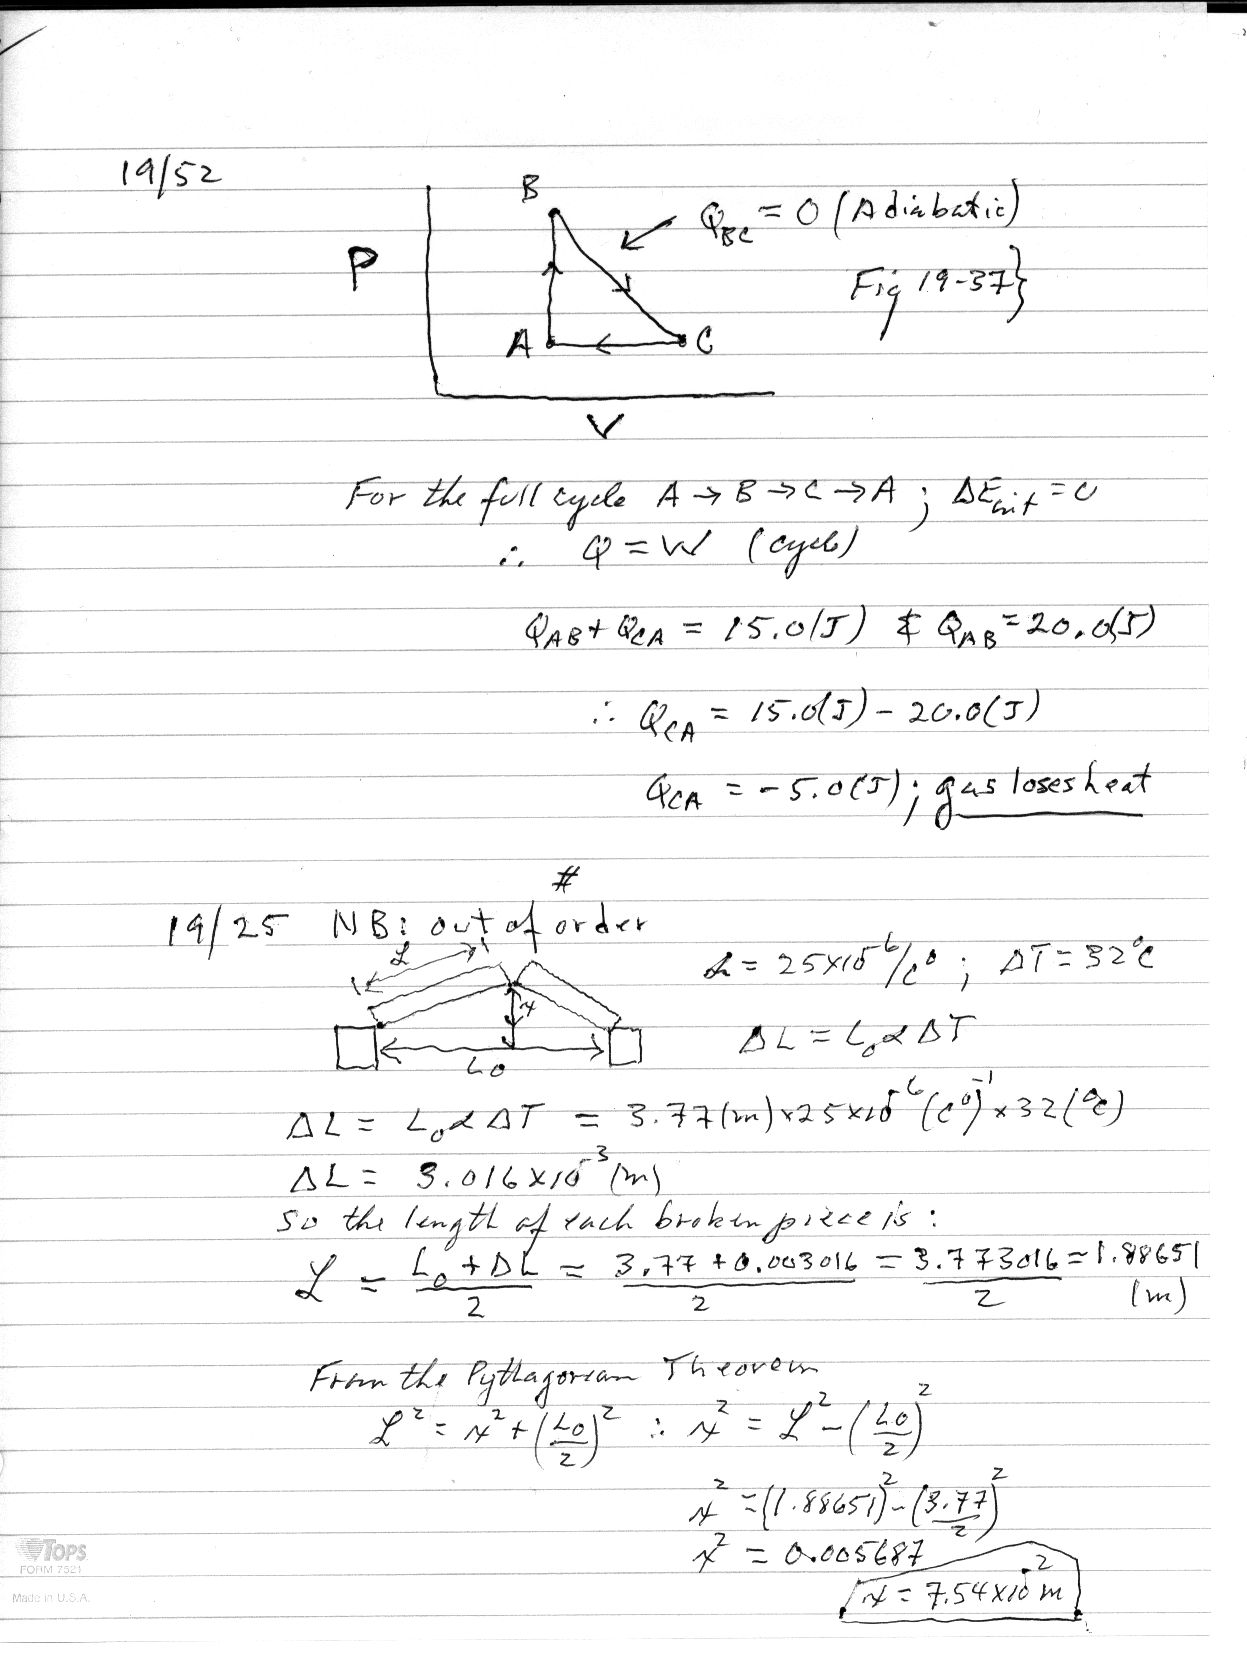 19/52
B
Q_BC = 0 (Adiabatic)
P
Fig 19-37}
A C
V
For the full cycle A → B → C → A ; ΔE_int = 0
∴ Q = W (cycle)
Q_AB + Q_CA = 15.0(J) & Q_AB = 20.0(J)
∴ Q_CA = 15.0(J) - 20.0(J)
Q_CA = -5.0(J); gas loses heat
#
19/25 NB: out of order
ℒ
α = 25x10^-6/C° ; ΔT = 32°C
x
ΔL = L₀αΔT
L₀
ΔL = L₀αΔT = 3.77(m)x25x10^-6(C°)^-1x32(°C)
ΔL = 3.016x10^-3(m)
So the length of each broken piece is:
ℒ = (L₀+ΔL)/2 = (3.77+0.003016)/2 = 3.773016/2 = 1.88651 (m)
From the Pythagorean Theorem
ℒ² = x² + (L₀/2)² ∴ x² = ℒ² - (L₀/2)²
x² = (1.88651)² - (3.77/2)²
x² = 0.005687
x = 7.54x10^-2 m
TOPS
FORM 7521
Made in U.S.A.